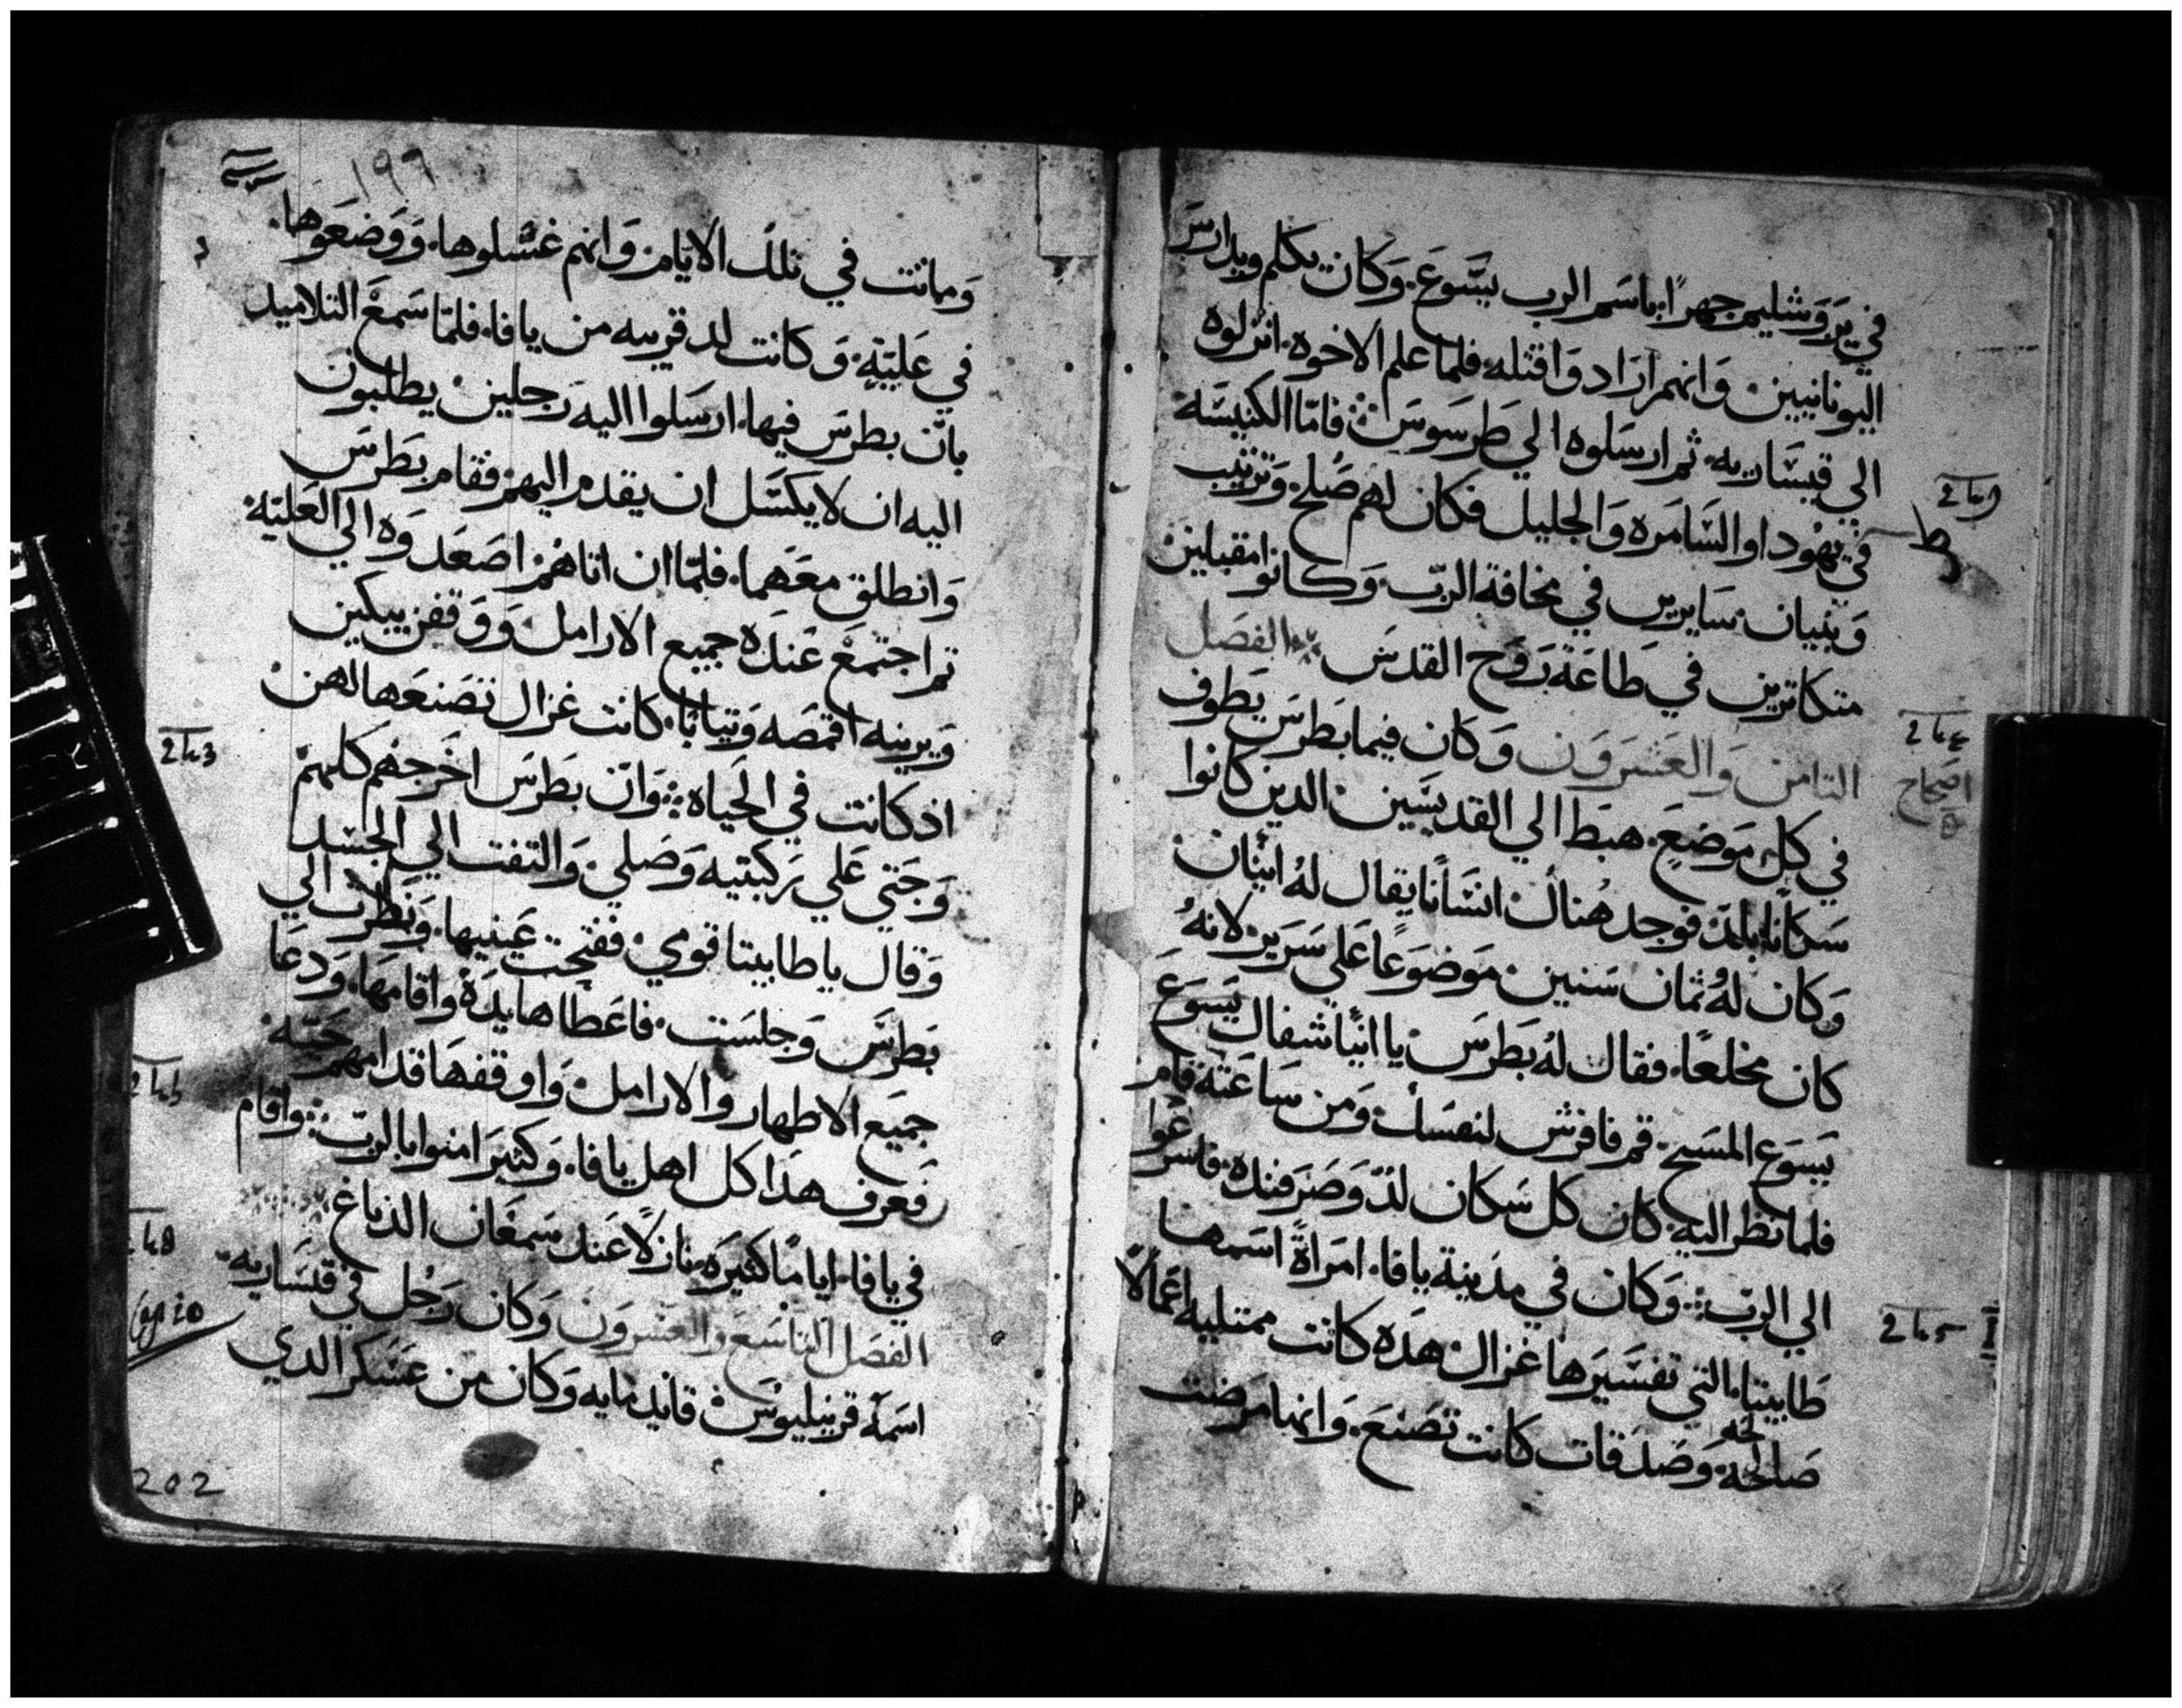 في يَروَشليم جهرًا باسم الرب يسَّوعَ. وَكان يكلم ويدارسَ
اليونانيين. وَانهم اراد واقتله. فلما علم الاخوه. انزلوه
الي قيسَّاريه. ثم ارسَلوه الي طرسَوسَ فامّا الكنيسَّه
في يهُودا والسَّامَره وَالجليل فكان لهم صُلح. وَترتيب
وَبنيان. سَايرين في مخافة الربّ. وَكانوا مقبلين
متكاترين في طاعَة رَوَح القدسَ الفصَل
التامن وَالعَشرَوَن وَكان فيما بَطرسَ يَطوف
في كل مَوضعَ. هبَط الي القديسَّين الدين كانوا
سَكانا بلدّ. فوَجد هُناك انسَانًا يقال لهُ انيَّان
وَكان لهُ ثمان سَنين مَوضوَعًا عَلي سَرَير لانهُ
كان مخلعًا. فقال لهُ بطرسَ يا انيَّا شفاك يَسَوعَ
يَسَوع المسَيح. قم فافرش لنفسَك. وَمن سَاعَته قام
فلما نظر اليه كان كل سَكان لدّ وَصَرَفنده. فاسَرعَوا
الي الربّ. وَكان في مدَينة يافا. امَرَاةً اسَمها
طابيتا. التي تفسَيَرها غزال هدَه كانت ممتليه اعَمالًا
صَالحه. وَصَدَقات كانت تصَنعَ. وَانها مرَضت
2ha
ط
2hε
اصَحاح
2h5
١٩٩
وَماتت في تلك الايّام. وَانهم غسَّلوها. وَوَضعَوَها.
في عَليّة. وَكانت لد قريبه من يافا. فلمّا سَمعَ التلاميد
بانّ بطرسَ فيها. ارسَلوا اليه رَجلين يطلبون
اليه ان لا يكسَل ان يقدم اليهم. فقام بَطرَسَ
وَانطلق معَهما. فلمّا ان اتاهُم اصَعَدوَه الي العَليّه.
تم اجتمعَ عَندَه جميع الارامل وَوَقفن يبكين
وَيرينه اقمصَه وَتيابًا. كانت غزال تصَنعَها لهن
اذ كانت في الحَياه وَانّ بطرَسَ اخَرَجهم كلهم
وَجتي عَلي رَكبتيه وَصَلي. وَالتفت الي الجَسَد
وَقال يا طابيتا قومي. ففتحت عَينيها. وَنظرَت الي
بَطرَسَ وَجلسَت. فاعَطاها يدَهُ واقامَها. وَدعَا
جميَع الاطهار والارامل وَاوقفهَا قدامهم حَيّه.
فعَرف هدَا كل اهل يافا. وَكثيرَ امنوا بالربّ. واقام
في يافا. ايامًا كثيرَه. نازلًا عَند سَمعَان الدباغ.
الفصَل التاسَعَ والعَشرَوَن وَكان رَجُل في قيسَاريه.
اسَمه قرنيليوسَ قايد مايه وَكان من عَسَكر الدي
2h3
Cap 10
202